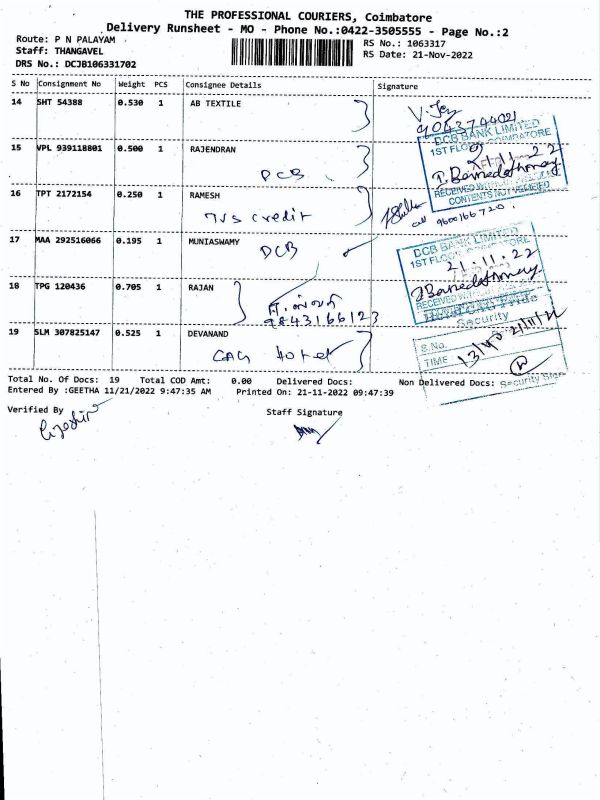 THE PROFESSIONAL COURIERS, Coimbatore
Delivery Runsheet - MO - Phone No.:0422-3505555 - Page No.:2
Route: P N PALAYAM RS No.: 1063317
Staff: THANGAVEL RS Date: 21-Nov-2022
DRS No.: DCJB106331702
S No Consignment No Weight PCS Consignee Details Signature
14 SHT 54388 0.530 1 AB TEXTILE
DCB BANK LIMITED
1ST FLOOR, COIMBATORE
15 VPL 939118801 0.500 1 RAJENDRAN
21.11.22
DCB
RECEIVED
CONTENTS NOT VERIFIED
16 TPT 2172154 0.250 1 RAMESH
TVS Credit
call 9600166720
17 MAA 292516066 0.195 1 MUNIASWAMY
DCB
DCB BANK LIMITED
1ST FLOOR
21.11.22
18 TPG 120436 0.705 1 RAJAN
9843166123
RECEIVED
Security
19 SLM 307825147 0.525 1 DEVANAND
CAG Hotel
S.No.
TIME 13/40 21/11/22
Total No. Of Docs: 19 Total COD Amt: 0.00 Delivered Docs: Non Delivered Docs: Security Sign
Entered By :GEETHA 11/21/2022 9:47:35 AM Printed On: 21-11-2022 09:47:39
Verified By Staff Signature